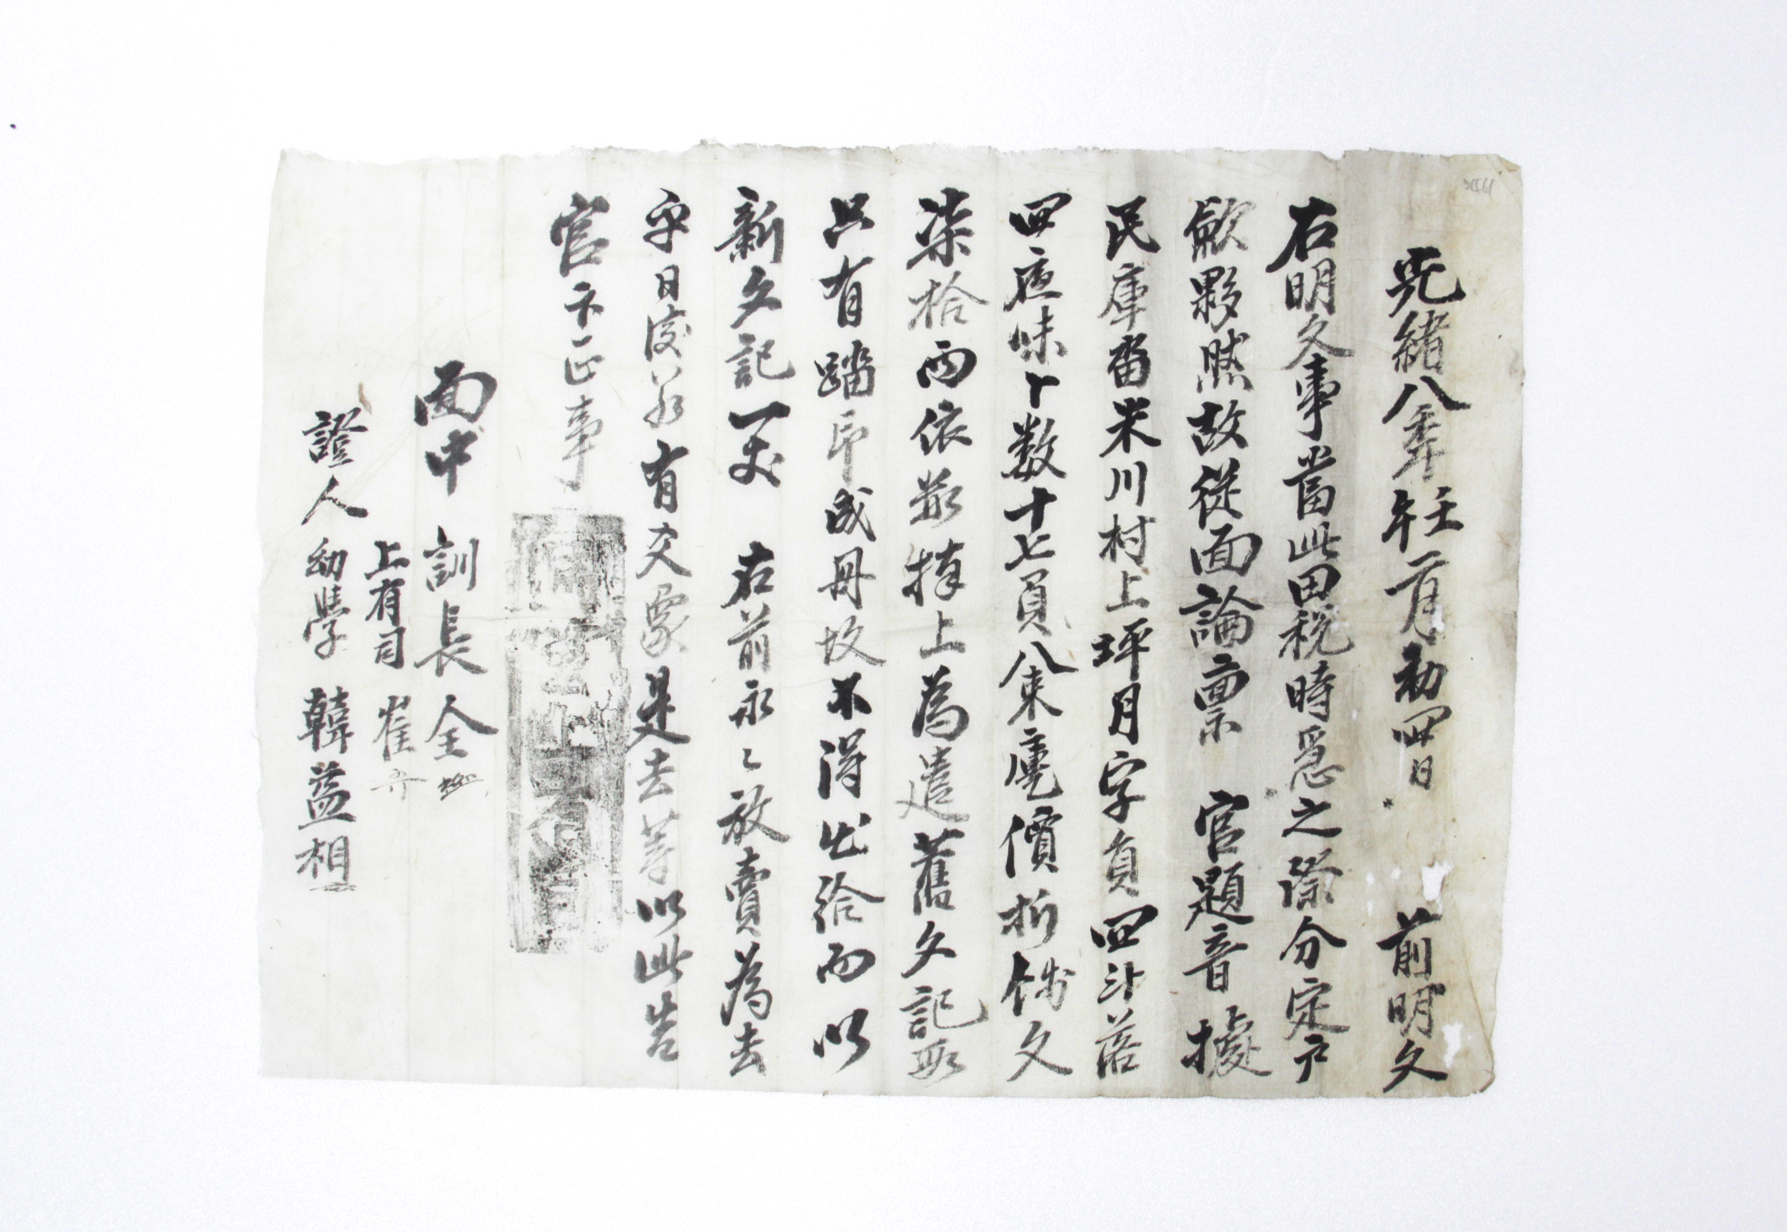 光緖八年壬午二月初四日 前明文
右明文事當此田稅時急之際分定戶
歛夥然故從面論稟 官題音據
民庫畓米川村上坪月字負四斗落
四夜味卜數十七負八束庫價折錢文
柒拾両依數捧上爲遣舊文記段
只有踏印成冊故不得出給而以
新文記一丈 右前永々放賣爲去
乎日後若有交象是去等以此告
官卞正事
面中 訓長 全
上有司 崔
證人 幼學 韓益相